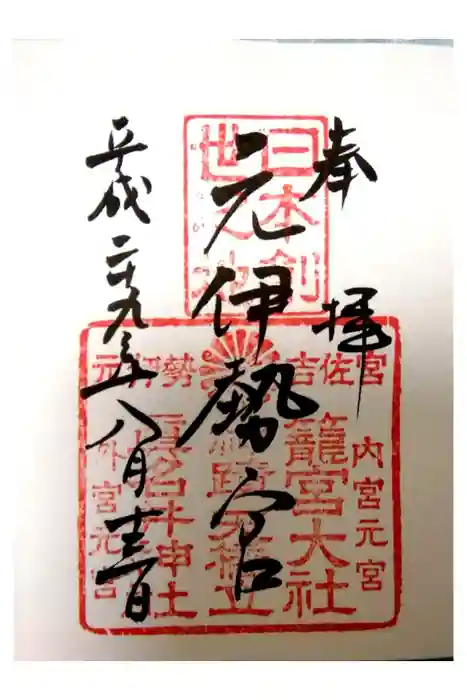 奉拝
日本創
世之地
元伊勢宮
平成二十九年八月十三日
元伊勢 吉佐宮
内宮元宮
籠宮大社
蹟天橋立
眞名井神社
外宮元宮